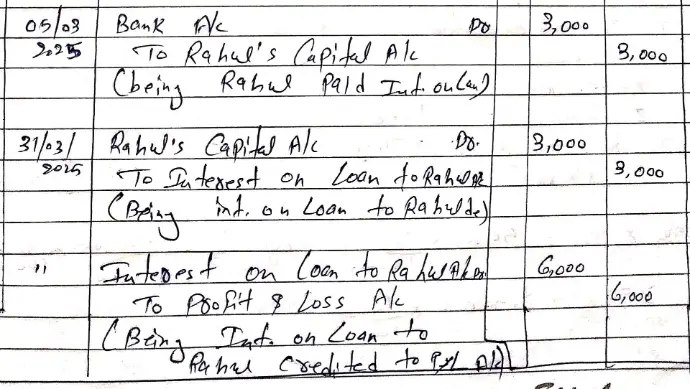 05/03 Bank A/c Dr 3,000
2025 To Rahul's Capital A/c 3,000
(being Rahul Paid Int. on
31/03/ Rahul's Capital A/c Dr. 3,000
2025 To Interest on Loan to Rahul A/c 3,000
(Being int. on Loan to Rahul due)
" Interest on Loan to Rahul A/c Dr 6,000
To Profit & Loss A/c 6,000
(Being Int. on Loan to
Rahul Credited to P&L A/c)